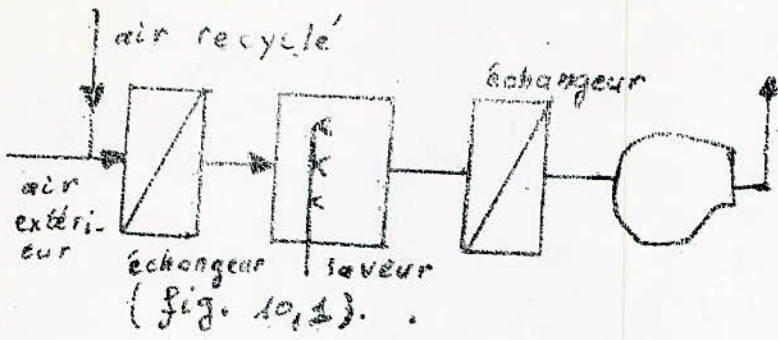 air recyclé
échangeur
air
extéri-
eur
échangeur
laveur
(fig. 10,1).